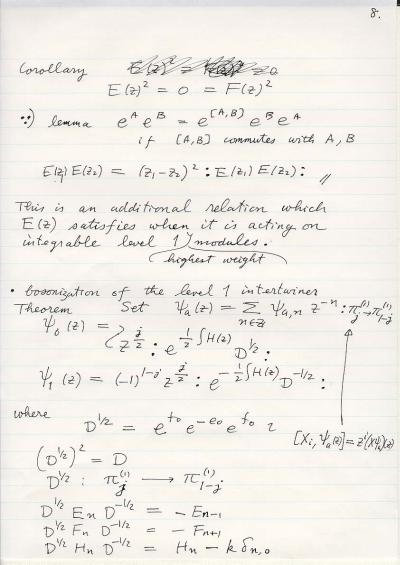 8.
Corollary
E(z)² = 0 = F(z)²
∵) lemma e^A e^B = e^{[A,B]} e^B e^A
if [A,B] commutes with A, B
E(z₁)E(z₂) = (z₁-z₂)² : E(z₁)E(z₂) : //
This is an additional relation which
E(z) satisfies when it is acting on
integrable level 1 modules.
highest weight
• bosonization of the level 1 intertwiner
Theorem Set Ψ_a(z) = Σ_{n∈Z} Ψ_{a,n} z^{-n} : π_j^{(1)} → π_{1-j}^{(1)}
Ψ_0(z) = z^{j/2} : e^{1/2 ∫H(z)} D^{1/2} :
Ψ_1(z) = (-1)^{1-j} z^{j/2} : e^{-1/2 ∫H(z)} D^{-1/2} :
where
D^{1/2} = e^{f_0} e^{-e_0} e^{f_0} τ
[X_i, Ψ_a(z)] = z^i (XΨ_a)(z)
(D^{1/2})² = D
D^{1/2} : π_j^{(1)} → π_{1-j}^{(1)}
D^{1/2} E_n D^{-1/2} = -E_{n-1}
D^{1/2} F_n D^{-1/2} = -F_{n+1}
D^{1/2} H_n D^{-1/2} = H_n - k δ_{n,0}